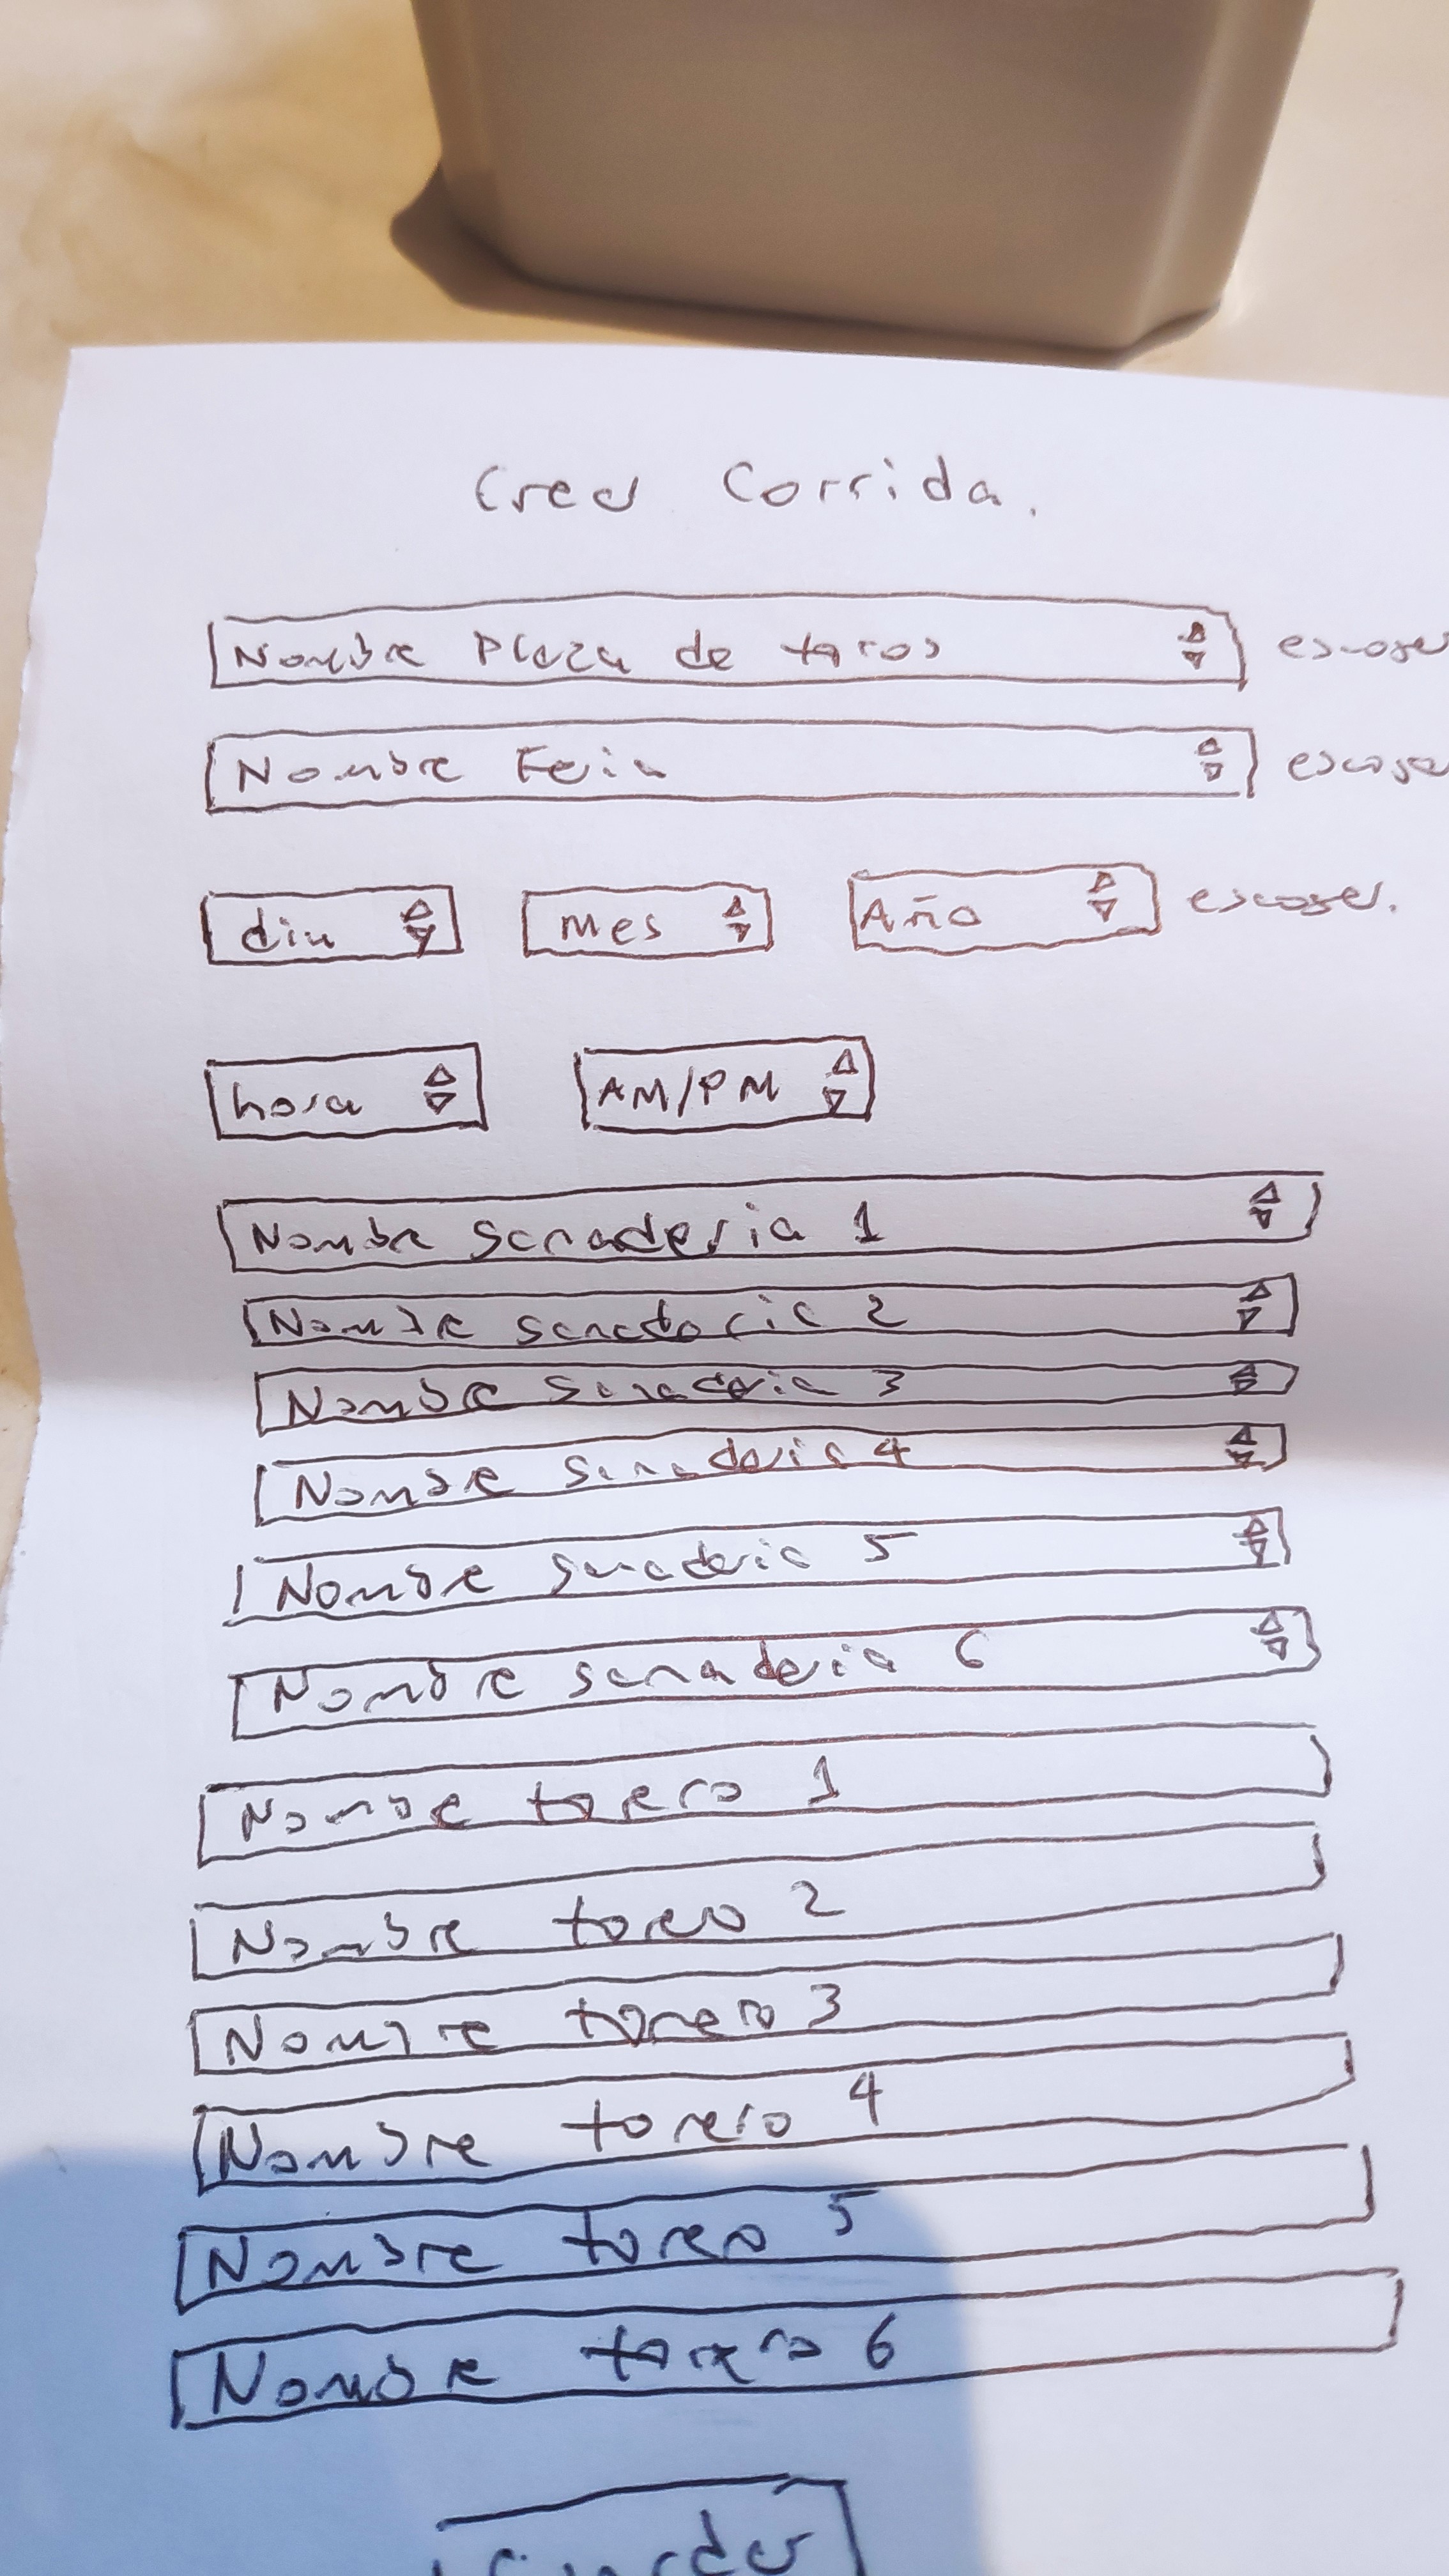 Crear Corrida.
Nombre Plaza de toros escoger
Nombre Feria escoger
dia mes Año escoger.
hora AM/PM
Nombre ganaderia 1
Nombre ganaderia 2
Nombre ganaderia 3
Nombre ganaderia 4
Nombre ganaderia 5
Nombre ganaderia 6
Nombre torero 1
Nombre torero 2
Nombre torero 3
Nombre torero 4
Nombre torero 5
Nombre torero 6
Guardar